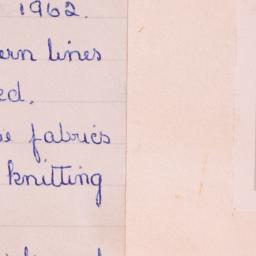 1962.
ern lines
ed.
fabrics
knitting